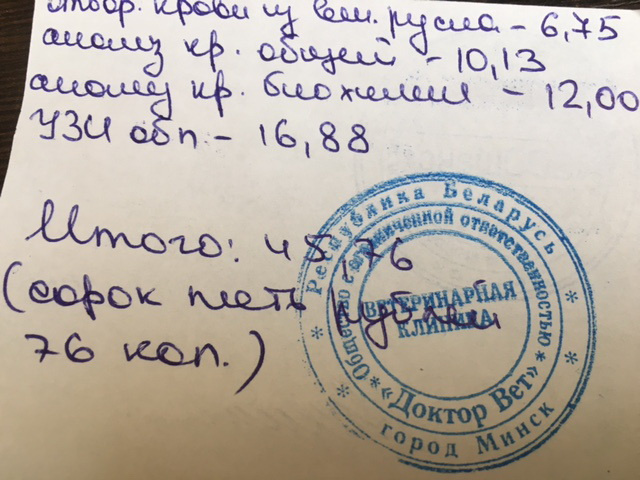 отбор крови из вен. русла - 6,75
анализ кр. общий - 10,13
анализ кр. биохимия - 12,00
УЗИ обп - 16,88
Итого: 45,76
(сорок пять рублей
76 коп.)
Республика Беларусь
Общество с ограниченной ответственностью
ВЕТЕРИНАРНАЯ
КЛИНИКА
«Доктор Вет»
город Минск